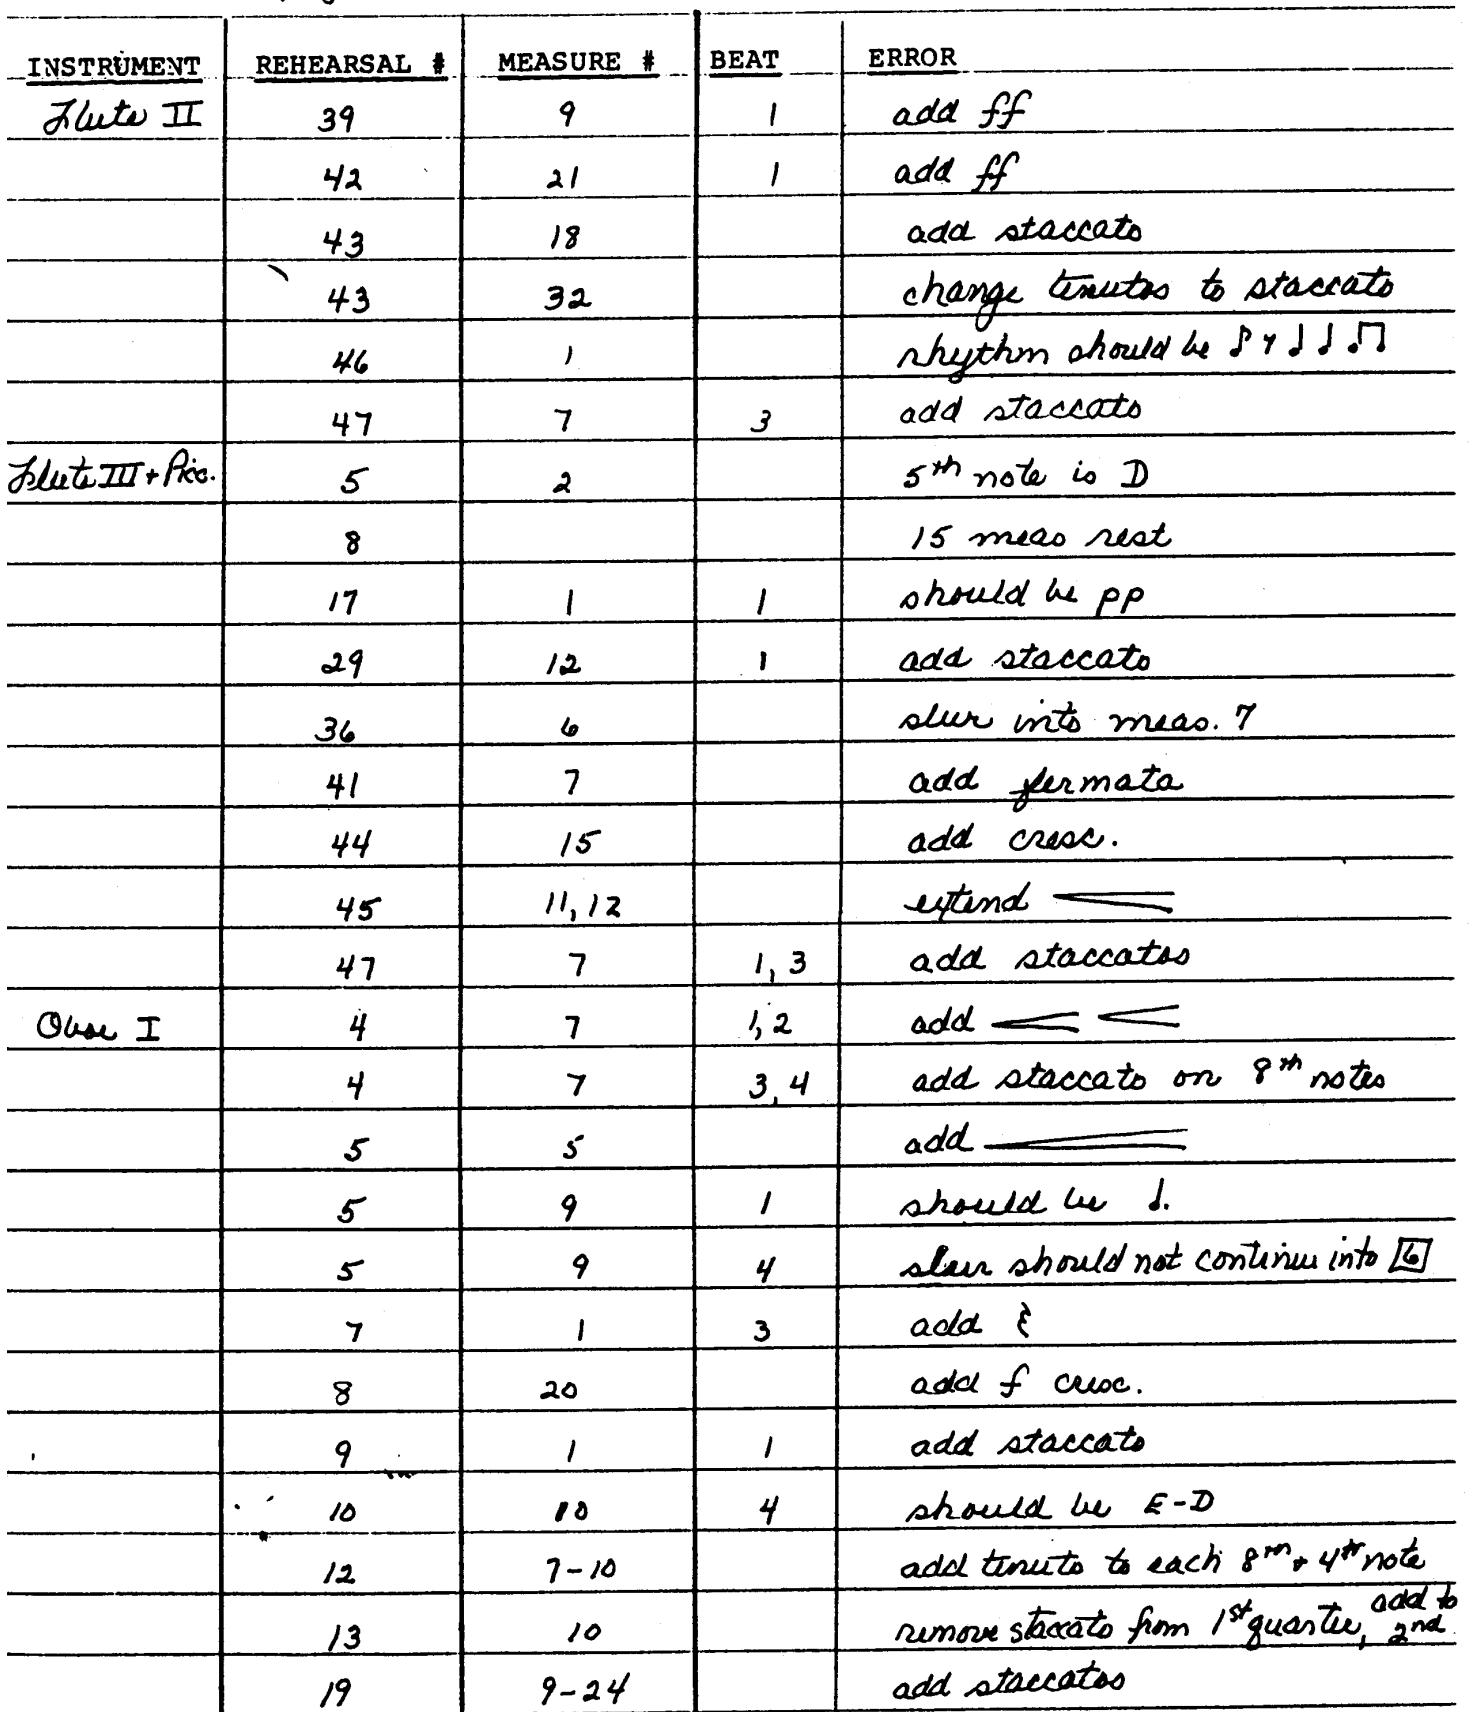 INSTRUMENT REHEARSAL # MEASURE # BEAT ERROR
Flute II 39 9 1 add ff
42 21 1 add ff
43 18 add staccato
43 32 change tenutos to staccato
46 1 rhythm should be ♪ 𝄾 ♩ ♩ ♫
47 7 3 add staccato
Flute III + Picc. 5 2 5th note is D
8 15 meas rest
17 1 1 should be pp
29 12 1 add staccato
36 6 slur into meas. 7
41 7 add fermata
44 15 add cresc.
45 11, 12 extend <
47 7 1, 3 add staccatos
Oboe I 4 7 1, 2 add < <
4 7 3, 4 add staccato on 8th notes
5 5 add <
5 9 1 should be ♩.
5 9 4 slur should not continue into 6
7 1 3 add 𝄽
8 20 add f cresc.
9 1 1 add staccato
10 10 4 should be E-D
12 7-10 add tenuto to each 8th + 4th note
13 10 remove staccato from 1st quarter, add to 2nd
19 9-24 add staccatos